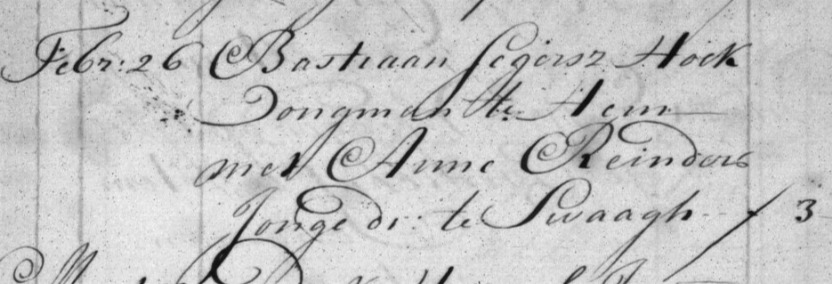 Febr: 26 Bastiaan Segersz Hoek
Jongman te Hem
met Anne Reinders
Jonge dr. te Swaagh / 3